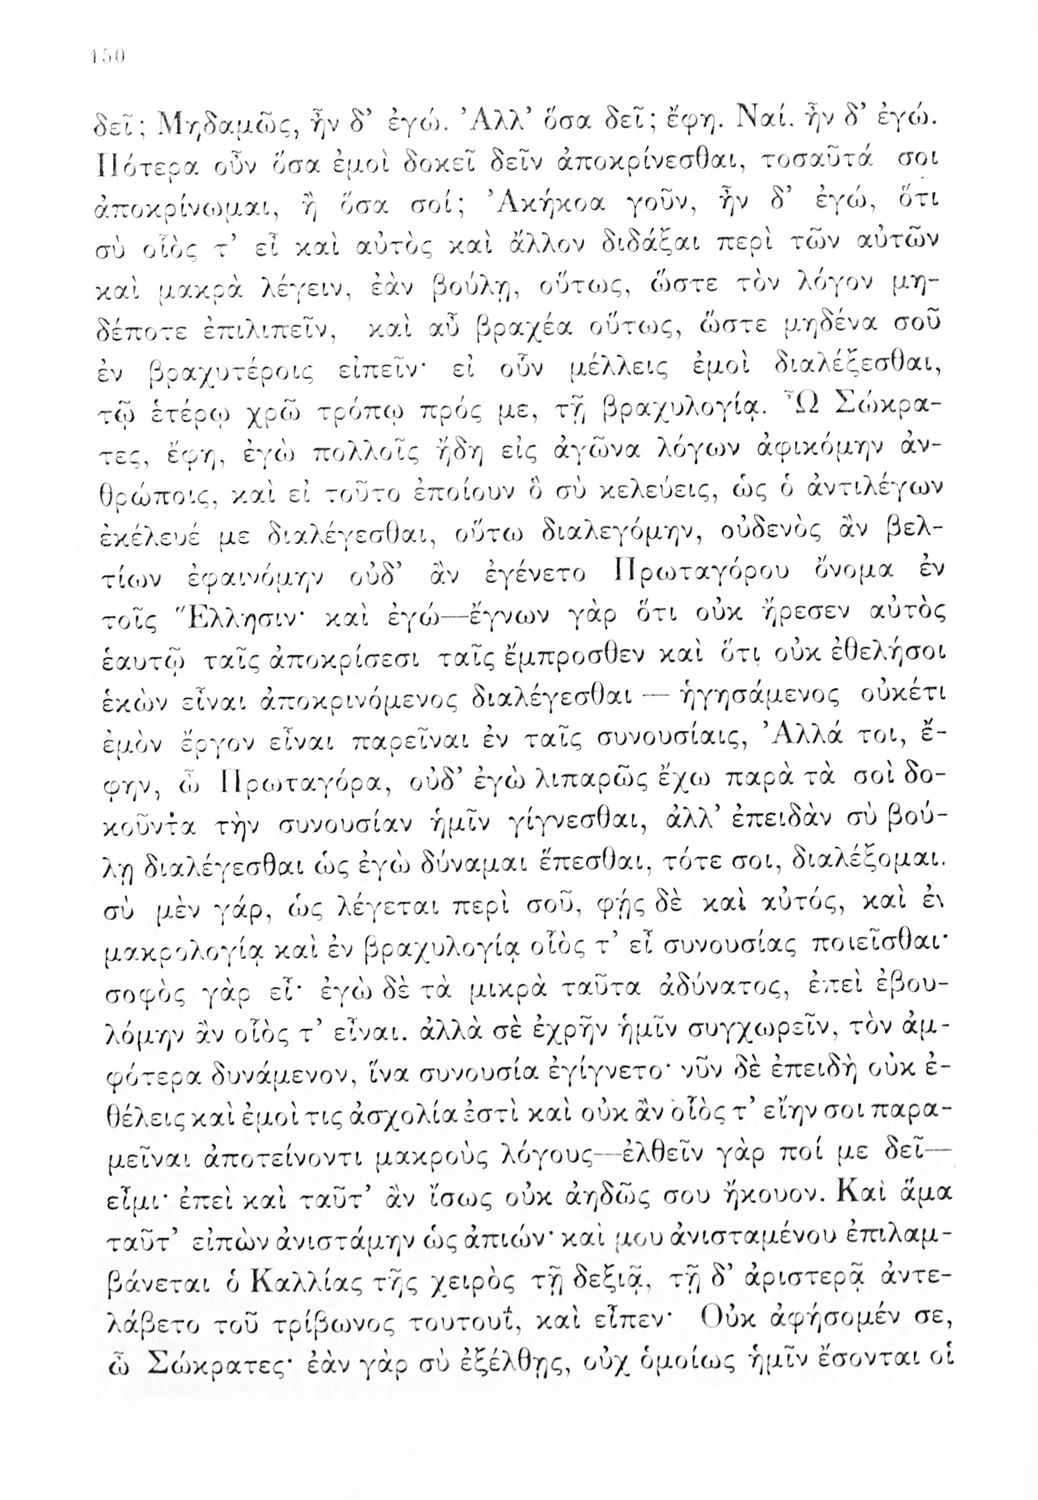 150
δεῖ; Μηδαμῶς, ἦν δ’ ἐγώ. Ἀλλ’ ὅσα δεῖ; ἔφη. Ναί. ἦν δ’ ἐγώ.
Πότερα οὖν ὅσα ἐμοὶ δοκεῖ δεῖν ἀποκρίνεσθαι, τοσαῦτά σοι
ἀποκρίνωμαι, ἢ ὅσα σοί; Ἀκήκοα γοῦν, ἦν δ’ ἐγώ, ὅτι
σὺ οἷὸς τ’ εἶ καὶ αὐτὸς καὶ ἄλλον διδάξαι περὶ τῶν αὐτῶν
καὶ μακρὰ λέγειν, ἐὰν βούλῃ, οὕτως, ὥστε τὸν λόγον μη-
δέποτε ἐπιλιπεῖν, καὶ αὖ βραχέα οὕτως, ὥστε μηδένα σοῦ
ἐν βραχυτέροις εἰπεῖν· εἰ οὖν μέλλεις ἐμοὶ διαλέξεσθαι,
τῷ ἑτέρῳ χρῶ τρόπῳ πρός με, τῇ βραχυλογίᾳ. Ὦ Σώκρα-
τες, ἔφη, ἐγὼ πολλοῖς ἤδη εἰς ἀγῶνα λόγων ἀφικόμην ἀν-
θρώποις, καὶ εἰ τοῦτο ἐποίουν ὃ σὺ κελεύεις, ὡς ὁ ἀντιλέγων
ἐκέλευέ με διαλέγεσθαι, οὕτω διαλεγόμην, οὐδενὸς ἂν βελ-
τίων ἐφαινόμην οὐδ’ ἂν ἐγένετο Πρωταγόρου ὄνομα ἐν
τοῖς Ἕλλησιν· καὶ ἐγώ—ἔγνων γὰρ ὅτι οὐκ ἤρεσεν αὐτὸς
ἑαυτῷ ταῖς ἀποκρίσεσι ταῖς ἔμπροσθεν καὶ ὅτι οὐκ ἐθελήσοι
ἑκὼν εἶναι ἀποκρινόμενος διαλέγεσθαι — ἡγησάμενος οὐκέτι
ἐμὸν ἔργον εἶναι παρεῖναι ἐν ταῖς συνουσίαις, Ἀλλά τοι, ἔ-
φην, ὦ Πρωταγόρα, οὐδ’ ἐγὼ λιπαρῶς ἔχω παρὰ τὰ σοὶ δο-
κοῦντα τὴν συνουσίαν ἡμῖν γίγνεσθαι, ἀλλ’ ἐπειδὰν σὺ βού-
λῃ διαλέγεσθαι ὡς ἐγὼ δύναμαι ἕπεσθαι, τότε σοι, διαλέξομαι.
σὺ μὲν γάρ, ὡς λέγεται περὶ σοῦ, φῄς δὲ καὶ αὐτός, καὶ ἐν
μακρολογίᾳ καὶ ἐν βραχυλογίᾳ οἷὸς τ’ εἶ συνουσίας ποιεῖσθαι·
σοφὸς γὰρ εἶ· ἐγὼ δὲ τὰ μικρὰ ταῦτα ἀδύνατος, ἐπεὶ ἐβου-
λόμην ἂν οἷὸς τ’ εἶναι. ἀλλὰ σὲ ἐχρῆν ἡμῖν συγχωρεῖν, τὸν ἀμ-
φότερα δυνάμενον, ἵνα συνουσία ἐγίγνετο· νῦν δὲ ἐπειδὴ οὐκ ἐ-
θέλεις καὶ ἐμοὶ τις ἀσχολία ἐστὶ καὶ οὐκ ἂν οἷὸς τ’ εἴην σοι παρα-
μεῖναι ἀποτείνοντι μακροὺς λόγους—ἐλθεῖν γὰρ ποί με δεῖ—
εἶμι· ἐπεὶ καὶ ταῦτ’ ἂν ἴσως οὐκ ἀηδῶς σου ἤκουον. Καὶ ἅμα
ταῦτ’ εἰπὼν ἀνιστάμην ὡς ἀπιών· καὶ μου ἀνισταμένου ἐπιλαμ-
βάνεται ὁ Καλλίας τῆς χειρὸς τῇ δεξιᾷ, τῇ δ’ ἀριστερᾷ ἀντε-
λάβετο τοῦ τρίβωνος τουτουΐ, καὶ εἶπεν· Οὐκ ἀφήσομέν σε,
ὦ Σώκρατες· ἐὰν γὰρ σὺ ἐξέλθῃς, οὐχ ὁμοίως ἡμῖν ἔσονται οἱ